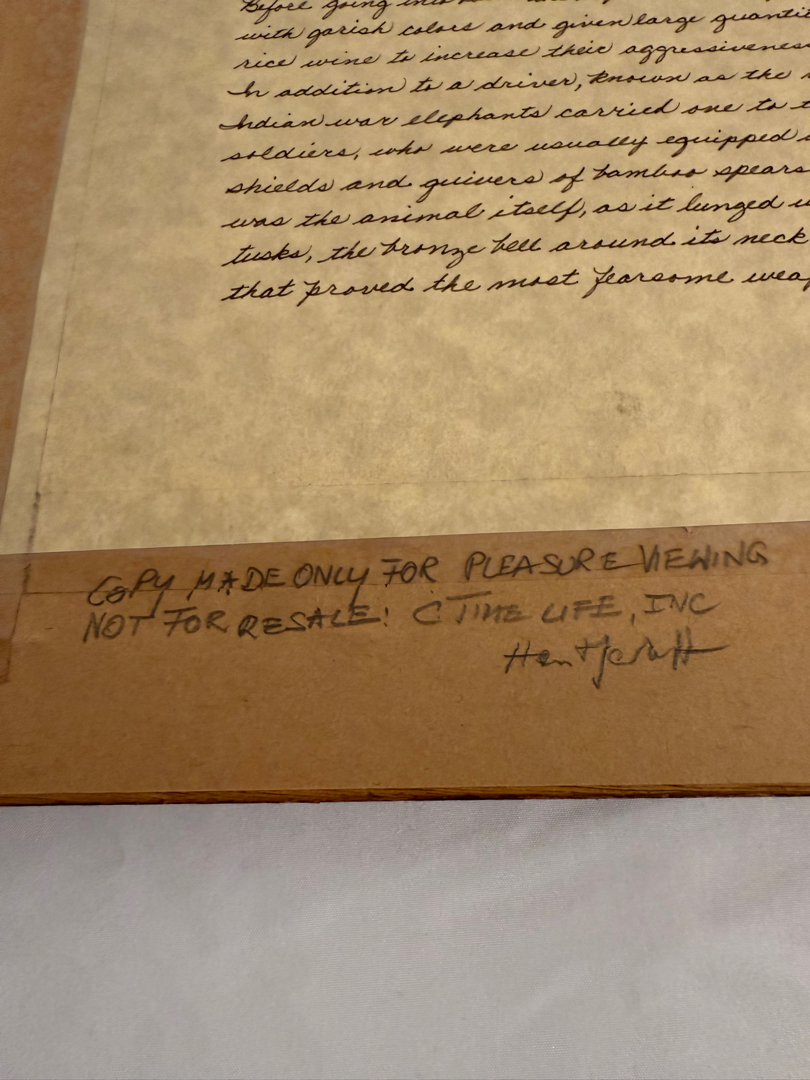 Before going into
with garish colors and given large
rice wine to increase their aggressiveness
In addition to a driver, known as the
Indian war elephants carried one to
soldiers, who were usually equipped
shields and quivers of bamboo spears
was the animal itself, as it lunged
tusks, the bronze bell around its neck
that proved the most fearsome
COPY MADE ONLY FOR PLEASURE VIEWING
NOT FOR RESALE! C TIME LIFE, INC